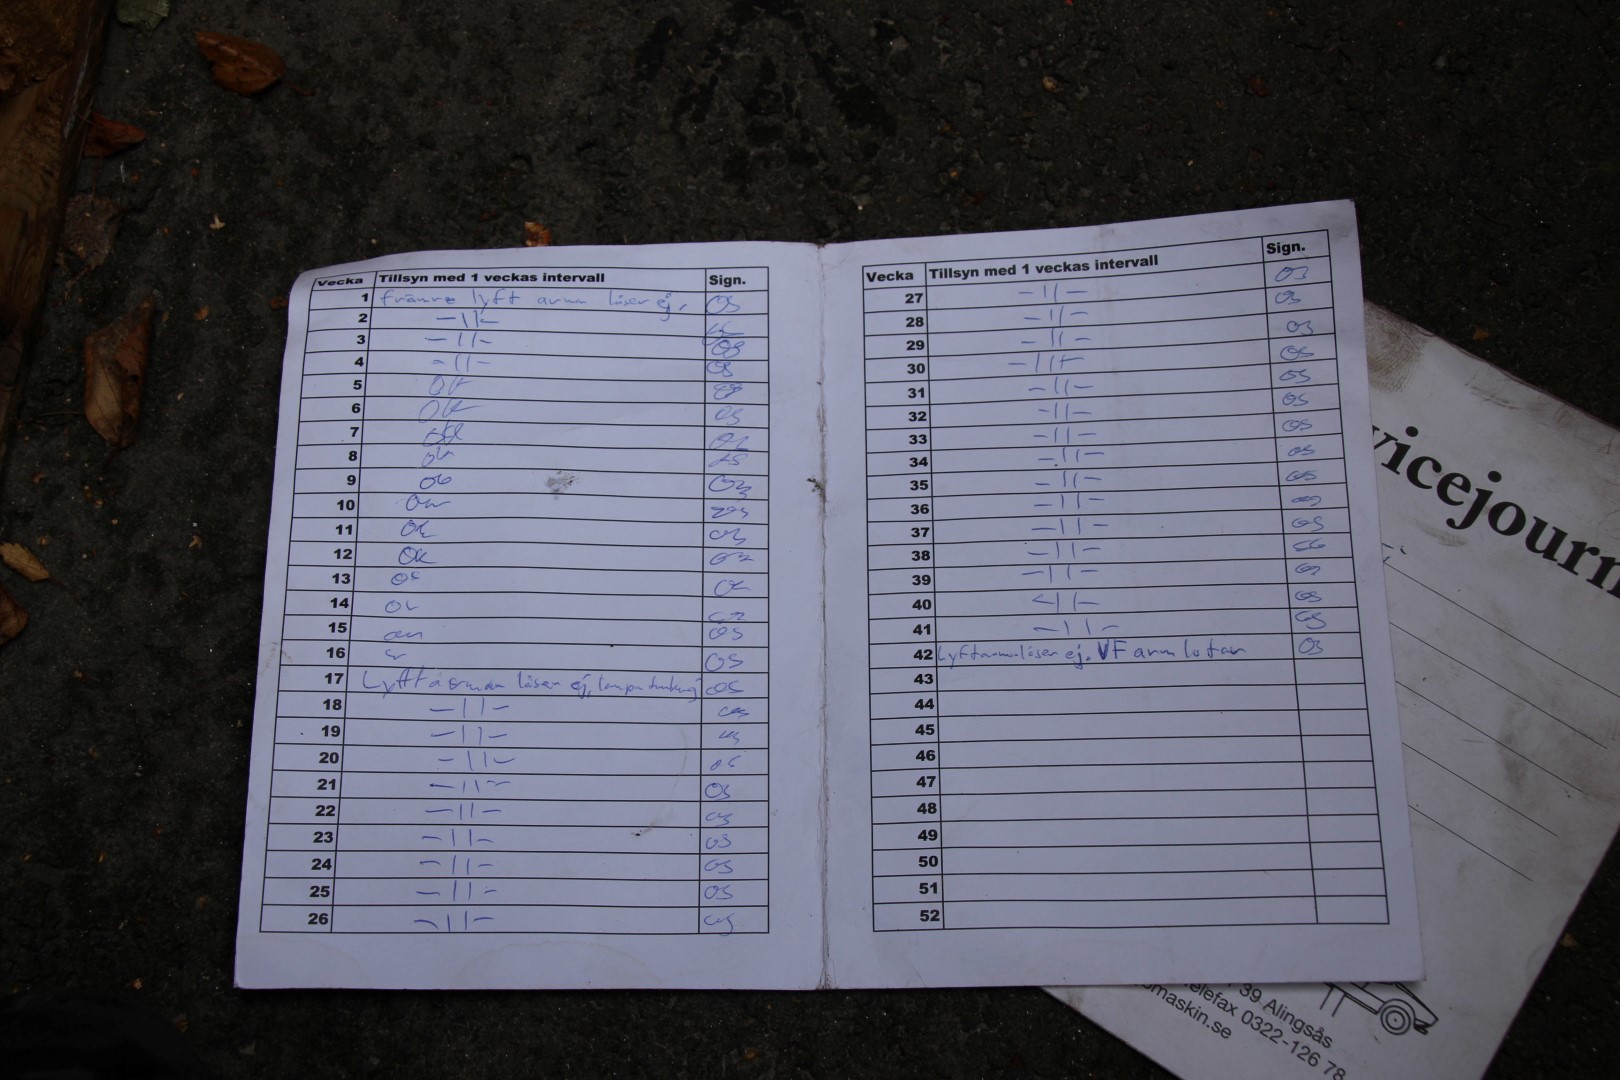 Vecka Tillsyn med 1 veckas intervall Sign.
1 främre lyft arm låser ej. OS
2 -11-
3 -11- OS
4 -11- OS
5 OK
6 OK OS
7 OK
8 ok
9 OK
10
11 OK OS
12 OK
13 OK
14 OK
15 OS
16 OS
17 Lyftarman låser ej, OS
18 -11- OS
19 -11- OS
20 -11- OS
21 -11- OS
22 -11- OS
23 -11- OS
24 -11- OS
25 -11- OS
26 -11- OS
Vecka Tillsyn med 1 veckas intervall Sign.
27 -11- OS
28 -11- OS
29 -11- OS
30 -11- OS
31 -11- OS
32 -11- OS
33 -11- OS
34 -11- OS
35 -11- OS
36 -11- OS
37 -11- OS
38 -11-
39 -11- OS
40 -11- OS
41 -11- OS
42 Lyftarm låser ej. VF arm lutar OS
43
44
45
46
47
48
49
50
51
52
vicejourn
39 Alingsås
elefax 0322-126 78
omaskin.se